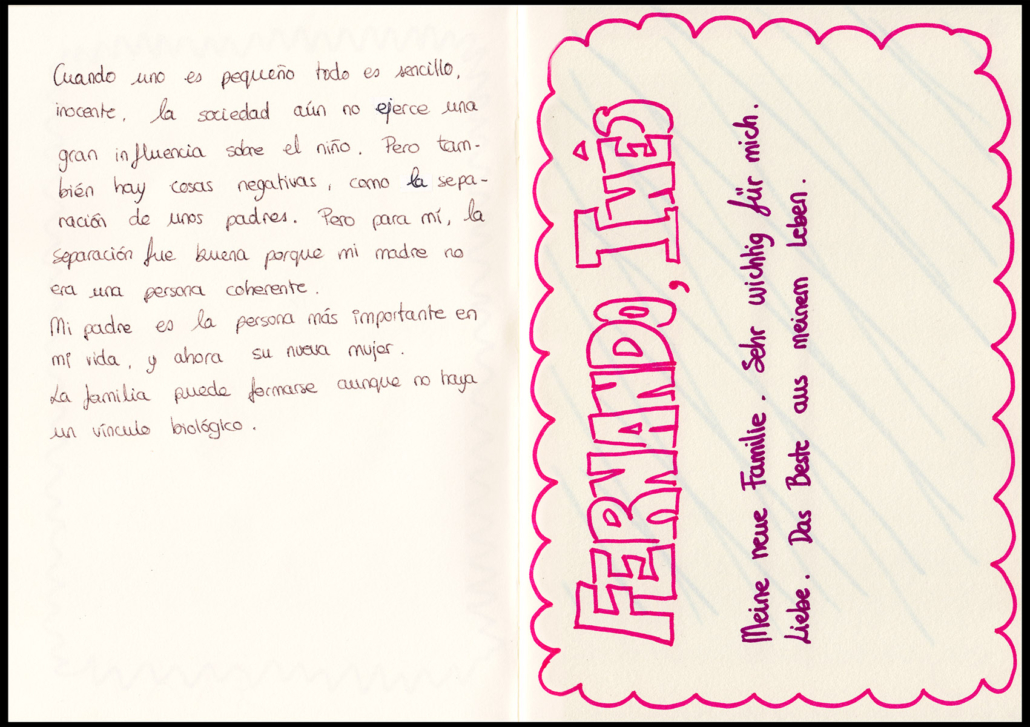 Cuando uno es pequeño todo es sencillo,
inocente, la sociedad aún no ejerce una
gran influencia sobre el niño. Pero tam-
bién hay cosas negativas, como la sepa-
ración de unos padres. Pero para mí, la
separación fue buena porque mi madre no
era una persona coherente.
Mi padre es la persona más importante en
mi vida, y ahora su nueva mujer.
La familia puede formarse aunque no haya
un vínculo biológico.
FERNANDO, INÉS
Meine neue Familie. Sehr wichtig für mich.
Liebe. Das Beste aus meinem Leben.